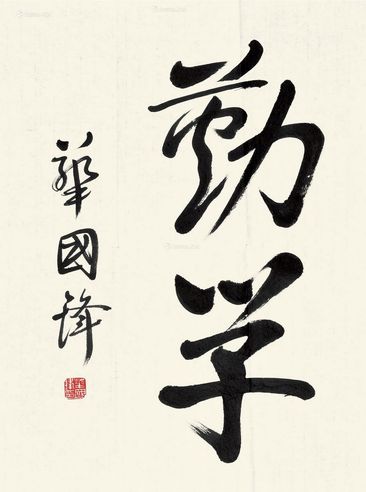 勤学
華國鋒